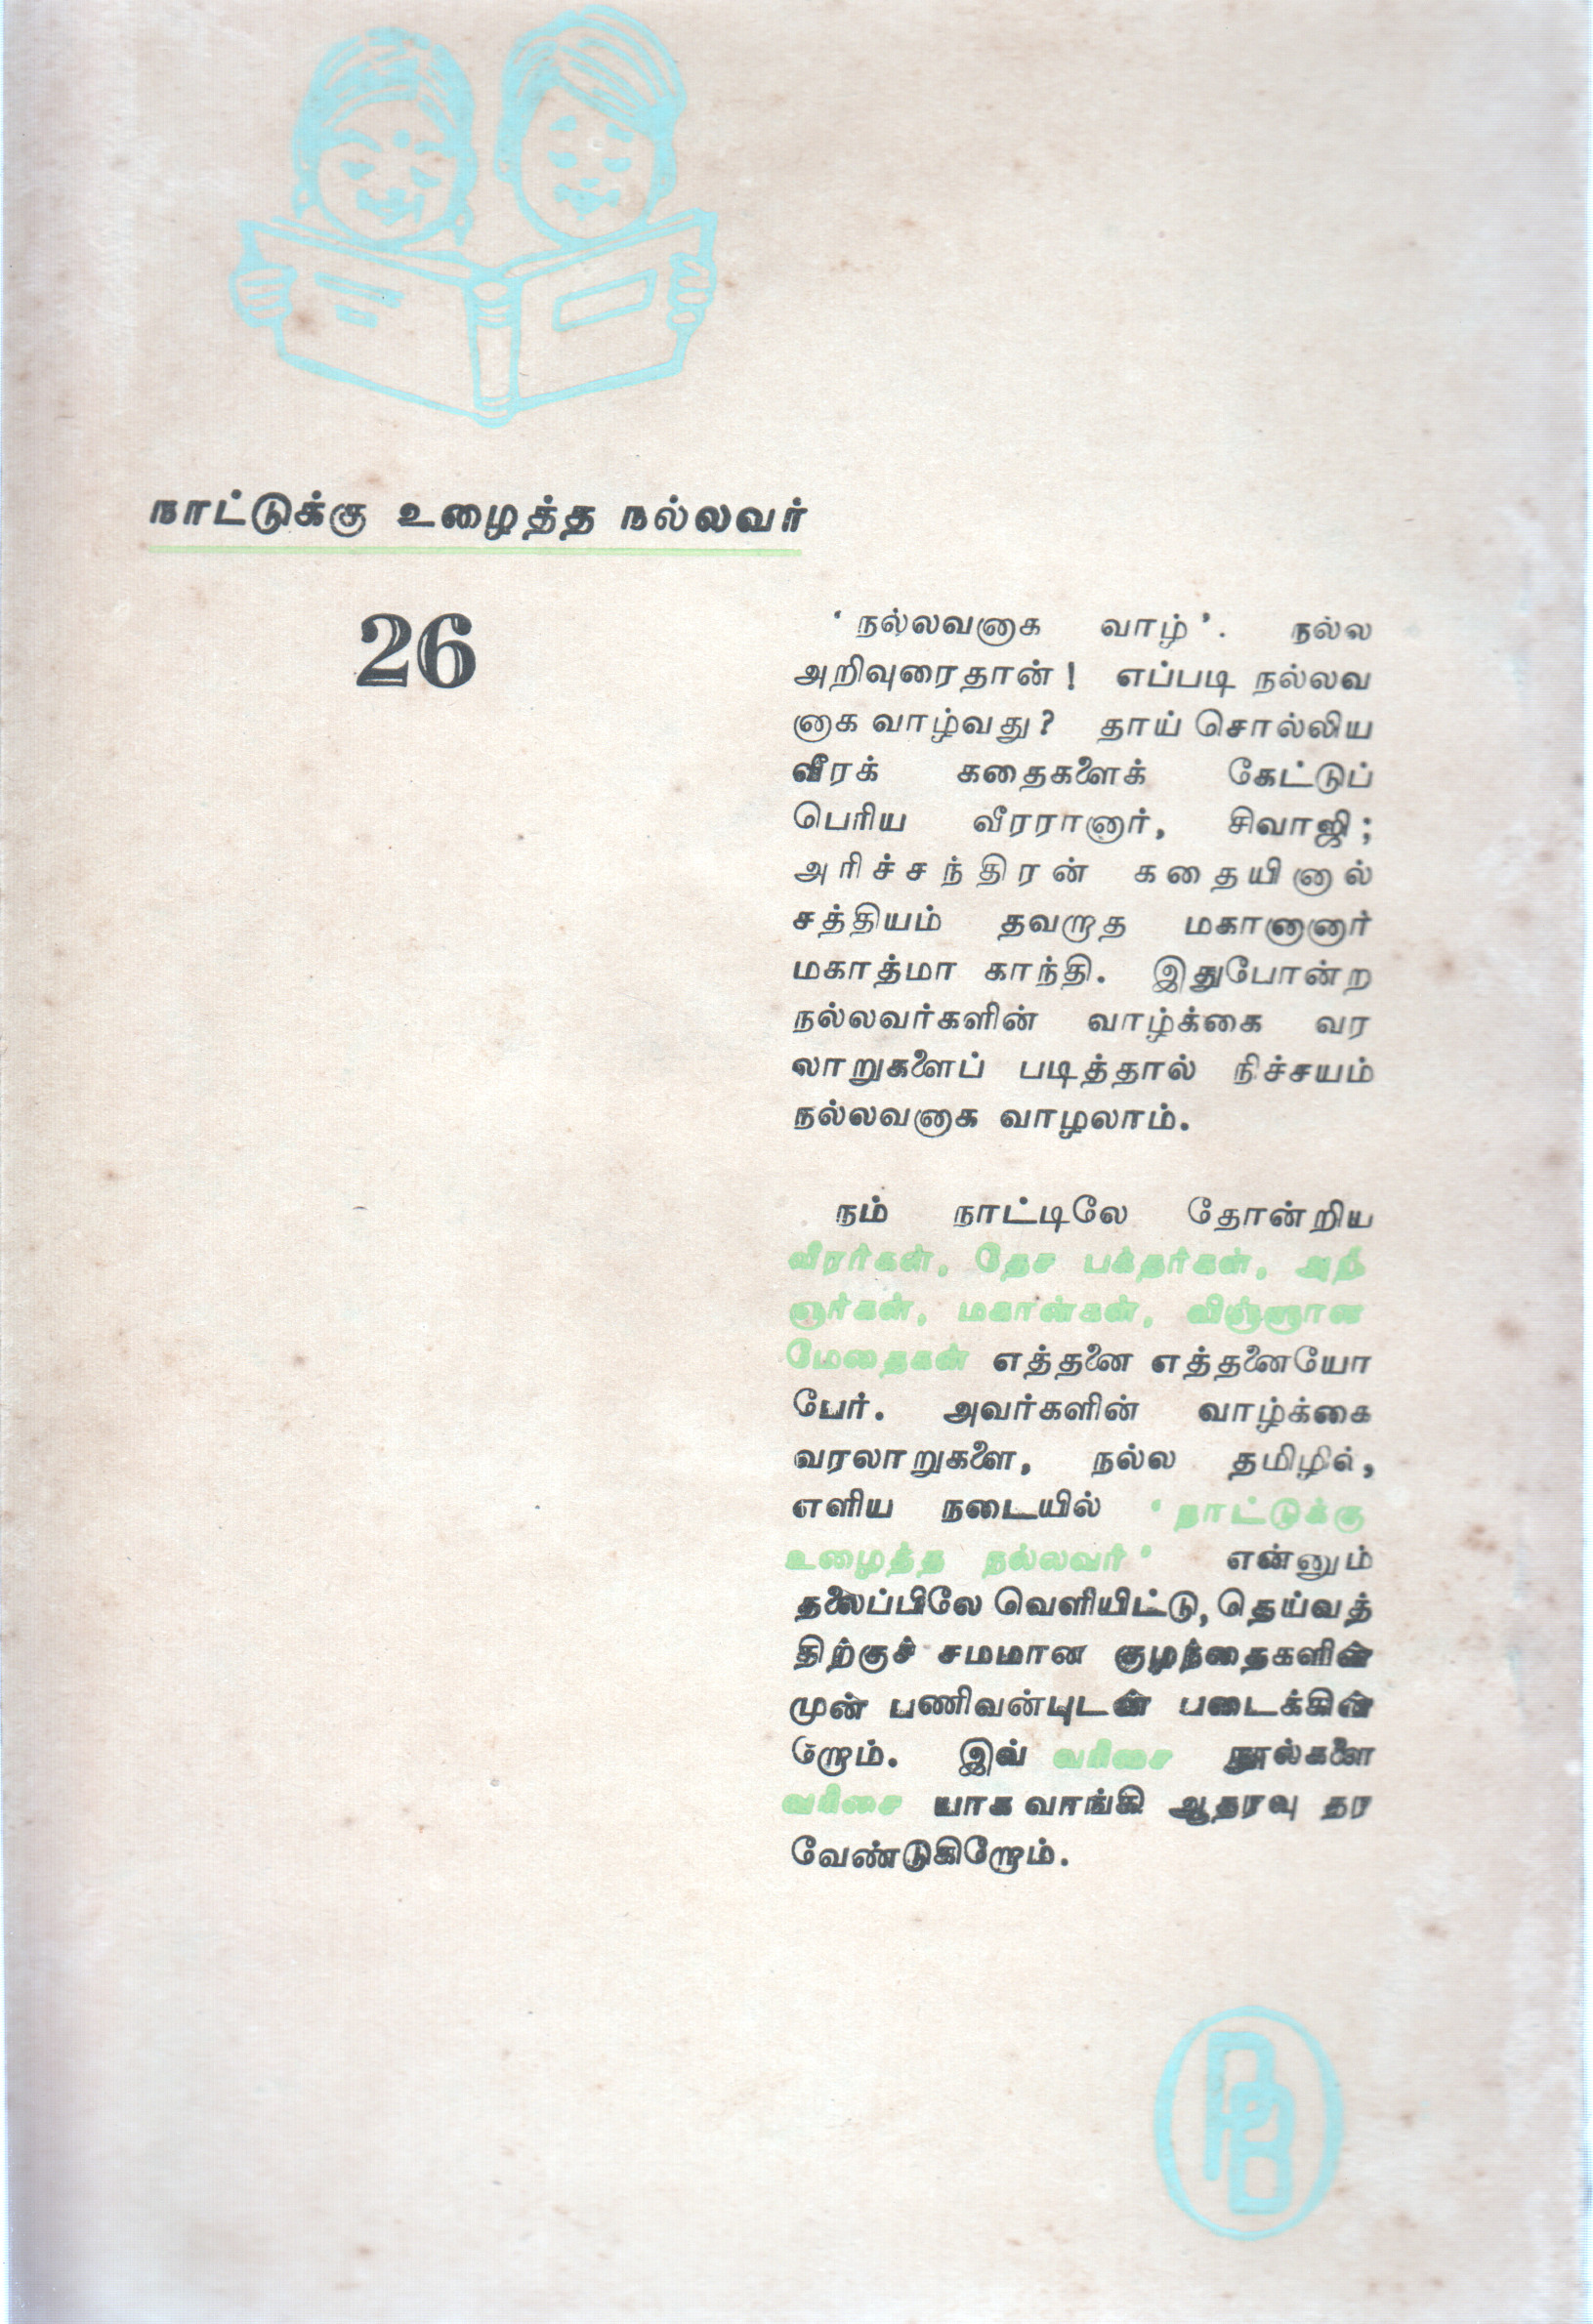 நாட்டுக்கு உழைத்த நல்லவர்
26
‘நல்லவனாக வாழ்’. நல்ல
அறிவுரைதான்! எப்படி நல்லவ
னாக வாழ்வது? தாய் சொல்லிய
வீரக் கதைகளைக் கேட்டுப்
பெரிய வீரரானார், சிவாஜி;
அரிச்சந்திரன் கதையினால்
சத்தியம் தவறாத மகானானார்
மகாத்மா காந்தி. இதுபோன்ற
நல்லவர்களின் வாழ்க்கை வர
லாறுகளைப் படித்தால் நிச்சயம்
நல்லவனாக வாழலாம்.
நம் நாட்டிலே தோன்றிய
வீரர்கள், தேச பக்தர்கள், அறி
ஞர்கள், மகான்கள், விஞ்ஞான
மேதைகள் எத்தனை எத்தனையோ
பேர். அவர்களின் வாழ்க்கை
வரலாறுகளை, நல்ல தமிழில்,
எளிய நடையில் ‘நாட்டுக்கு
உழைத்த நல்லவர்’ என்னும்
தலைப்பிலே வெளியிட்டு, தெய்வத்
திற்குச் சமமான குழந்தைகளின்
முன் பணிவன்புடன் படைக்கின்
றோம். இவ் வரிசை நூல்களை
வரிசை யாக வாங்கி ஆதரவு தர
வேண்டுகிறோம்.
PB